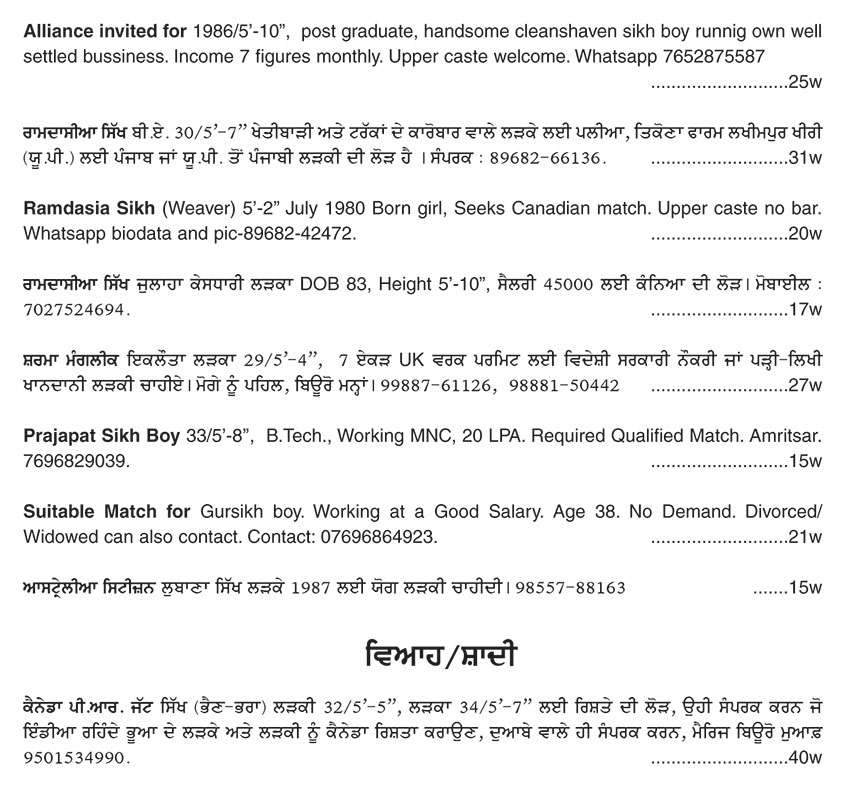 Alliance invited for 1986/5'-10", post graduate, handsome cleanshaven sikh boy runnig own well
settled bussiness. Income 7 figures monthly. Upper caste welcome. Whatsapp 7652875587
...........................25w
ਰਾਮਦਾਸੀਆ ਸਿੱਖ ਬੀ.ਏ. 30/5'-7" ਖੇਤੀਬਾੜੀ ਅਤੇ ਟਰੱਕਾਂ ਦੇ ਕਾਰੋਬਾਰ ਵਾਲੇ ਲੜਕੇ ਲਈ ਪਲੀਆ, ਤਿਕੋਣਾ ਫਾਰਮ ਲਖੀਮਪੁਰ ਖੀਰੀ
(ਯੂ.ਪੀ.) ਲਈ ਪੰਜਾਬ ਜਾਂ ਯੂ.ਪੀ. ਤੋਂ ਪੰਜਾਬੀ ਲੜਕੀ ਦੀ ਲੋੜ ਹੈ । ਸੰਪਰਕ : 89682-66136. ...........................31w
Ramdasia Sikh (Weaver) 5'-2" July 1980 Born girl, Seeks Canadian match. Upper caste no bar.
Whatsapp biodata and pic-89682-42472. ...........................20w
ਰਾਮਦਾਸੀਆ ਸਿੱਖ ਜੁਲਾਹਾ ਕੇਸਧਾਰੀ ਲੜਕਾ DOB 83, Height 5'-10", ਸੈਲਰੀ 45000 ਲਈ ਕੰਨਿਆ ਦੀ ਲੋੜ। ਮੋਬਾਈਲ :
7027524694. ...........................17w
ਸ਼ਰਮਾ ਮੰਗਲੀਕ ਇਕਲੌਤਾ ਲੜਕਾ 29/5'-4", 7 ਏਕੜ UK ਵਰਕ ਪਰਮਿਟ ਲਈ ਵਿਦੇਸ਼ੀ ਸਰਕਾਰੀ ਨੌਕਰੀ ਜਾਂ ਪੜ੍ਹੀ-ਲਿਖੀ
ਖਾਨਦਾਨੀ ਲੜਕੀ ਚਾਹੀਏ। ਮੋਗੇ ਨੂੰ ਪਹਿਲ, ਬਿਊਰੋ ਮਨ੍ਹਾਂ। 99887-61126, 98881-50442 ...........................27w
Prajapat Sikh Boy 33/5'-8", B.Tech., Working MNC, 20 LPA. Required Qualified Match. Amritsar.
7696829039. ...........................15w
Suitable Match for Gursikh boy. Working at a Good Salary. Age 38. No Demand. Divorced/
Widowed can also contact. Contact: 07696864923. ...........................21w
ਆਸਟ੍ਰੇਲੀਆ ਸਿਟੀਜ਼ਨ ਲੁਬਾਣਾ ਸਿੱਖ ਲੜਕੇ 1987 ਲਈ ਯੋਗ ਲੜਕੀ ਚਾਹੀਦੀ। 98557-88163 .......15w
ਵਿਆਹ/ਸ਼ਾਦੀ
ਕੈਨੇਡਾ ਪੀ.ਆਰ. ਜੱਟ ਸਿੱਖ (ਭੈਣ-ਭਰਾ) ਲੜਕੀ 32/5'-5", ਲੜਕਾ 34/5'-7" ਲਈ ਰਿਸ਼ਤੇ ਦੀ ਲੋੜ, ਉਹੀ ਸੰਪਰਕ ਕਰਨ ਜੋ
ਇੰਡੀਆ ਰਹਿੰਦੇ ਭੂਆ ਦੇ ਲੜਕੇ ਅਤੇ ਲੜਕੀ ਨੂੰ ਕੈਨੇਡਾ ਰਿਸ਼ਤਾ ਕਰਾਉਣ, ਦੁਆਬੇ ਵਾਲੇ ਹੀ ਸੰਪਰਕ ਕਰਨ, ਮੈਰਿਜ ਬਿਊਰੋ ਮੁਆਫ਼
9501534990. ...........................40w